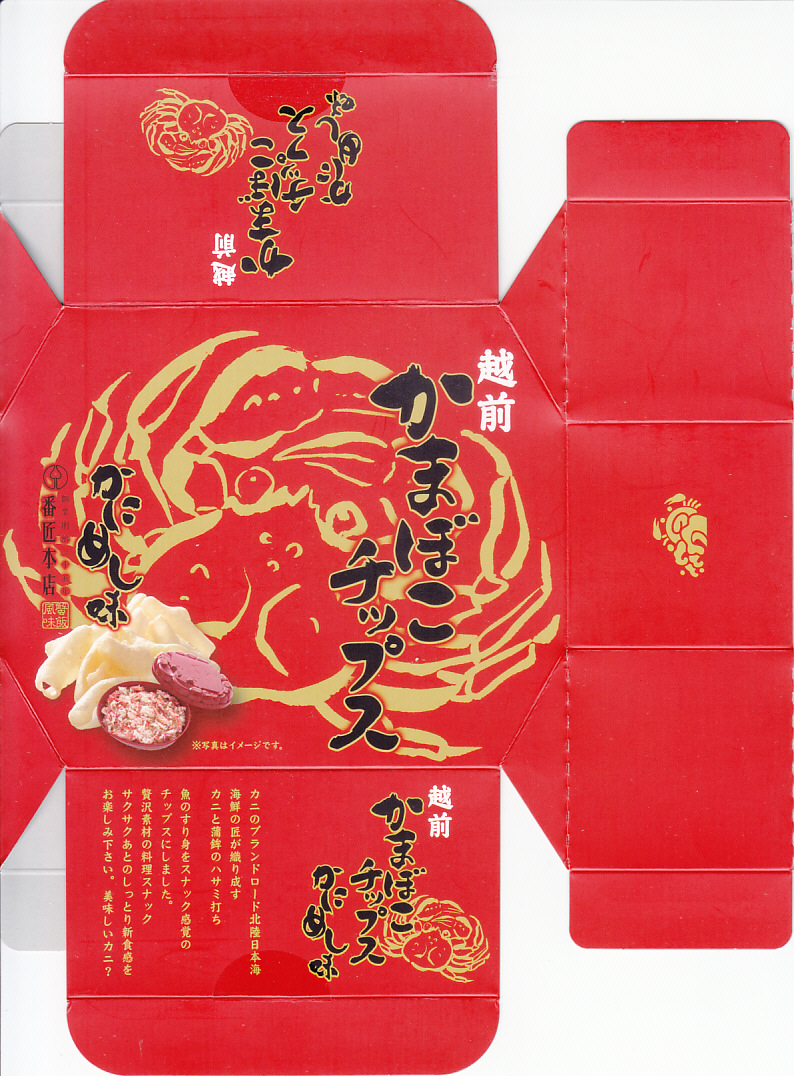 越前
かまぼこ
チップス
かにめし味
越前
かまぼこ
チップス
かにめし味
番匠本店
蟹飯
風味
※写真はイメージです。
越前
かまぼこ
チップス
かにめし味
カニのブランドロード北陸日本海
海鮮の匠が織り成す
カニと蒲鉾のハサミ打ち
魚のすり身をスナック感覚の
チップスにしました。
贅沢素材の料理スナック
サクサクあとのしっとり新食感を
お楽しみ下さい。美味しいカニ？